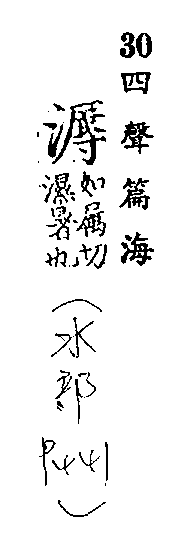 30 四聲篇海
如属切
濕暑也
（水部
P441）